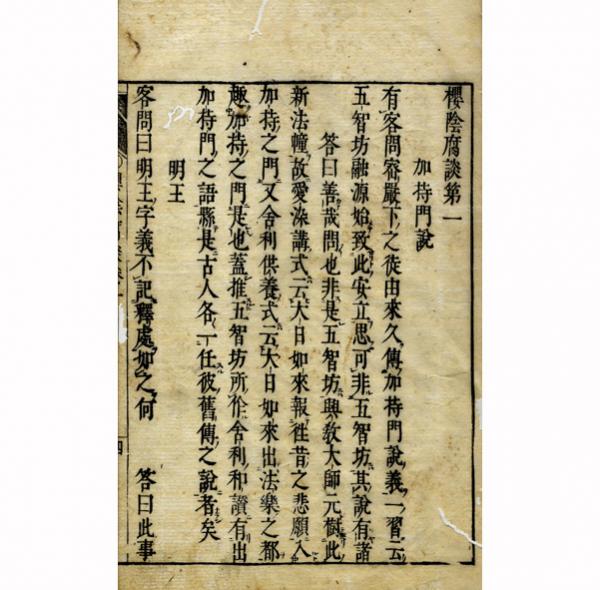 櫻陰腐談第一
加持門說
有客問密嚴下之徒由來久傳加持門說義一習云
五智坊融源始致此安立思可非五智坊其說有諸
答曰善哉問也非是五智坊興敎大師元樹此
新法幢故愛染講式云大日如來報往昔之悲願入
加持之門又舍利供養式云大日如來出法樂之都
趣加持之門是也蓋推五智坊所作舍利和讚有出
加持門之語縣是古人各一任彼舊傳之說者矣
明王
客問曰明王字義不記釋處如之何 答曰此事